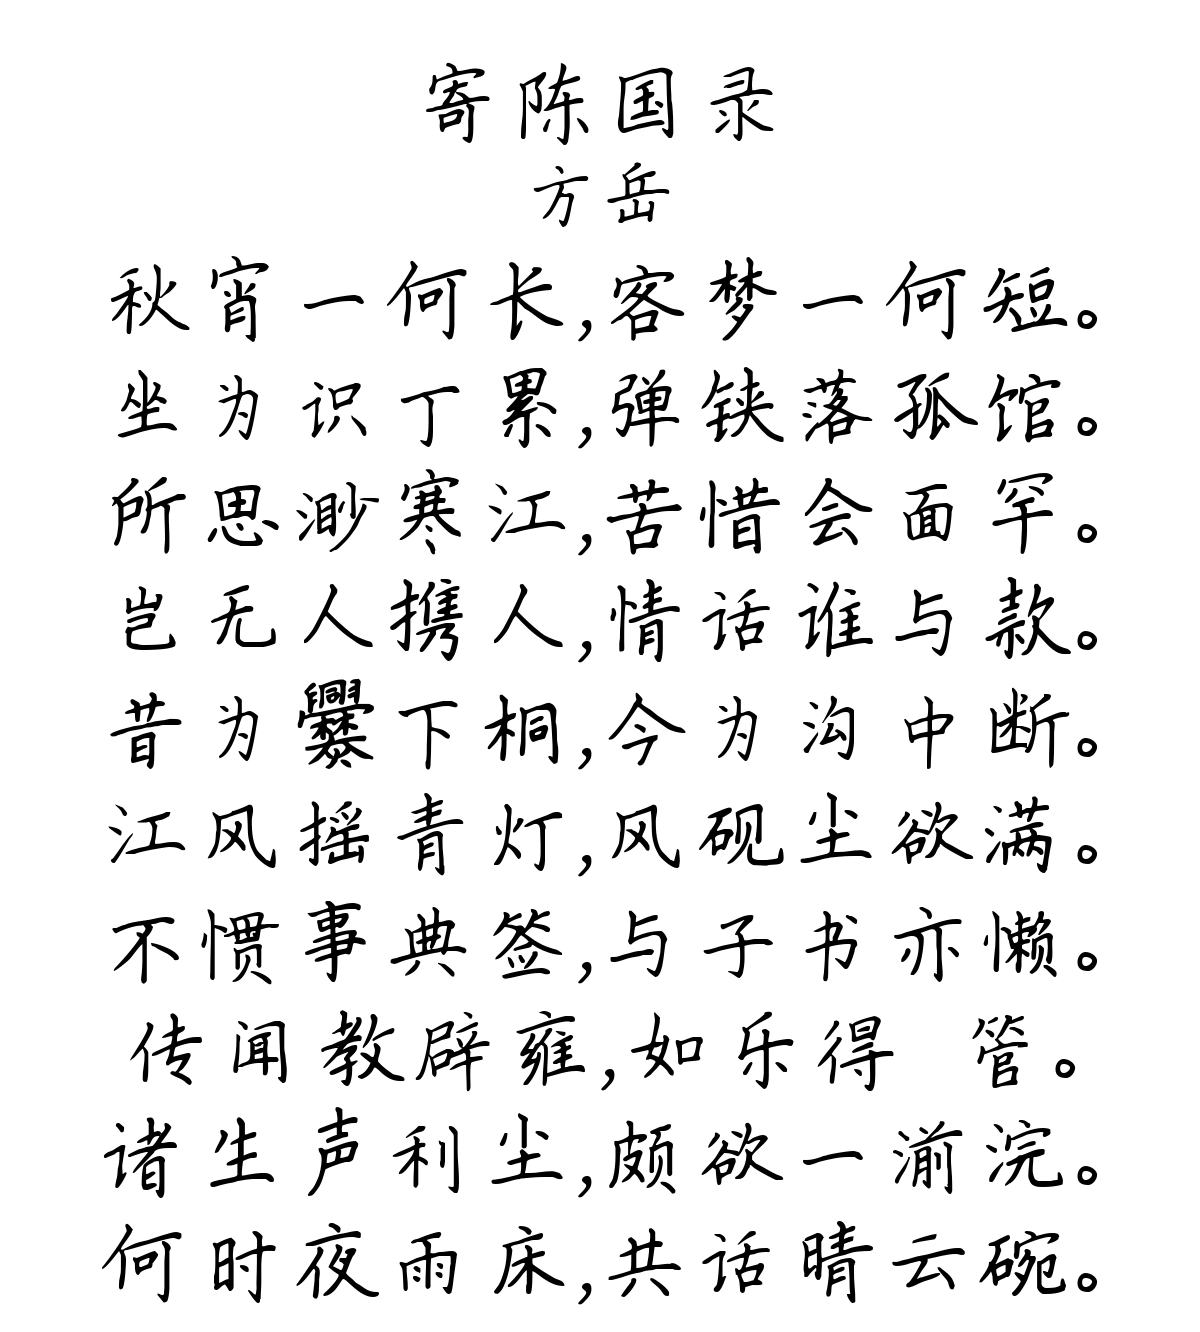 寄陈国录
方岳
秋宵一何长,客梦一何短。
坐为识丁累,弹铗落孤馆。
所思渺寒江,苦惜会面罕。
岂无人携人,情话谁与款。
昔为爨下桐,今为沟中断。
江风摇青灯,风砚尘欲满。
不惯事典签,与子书亦懒。
传闻教辟雍,如乐得 管。
诸生声利尘,颇欲一湔浣。
何时夜雨床,共话晴云碗。